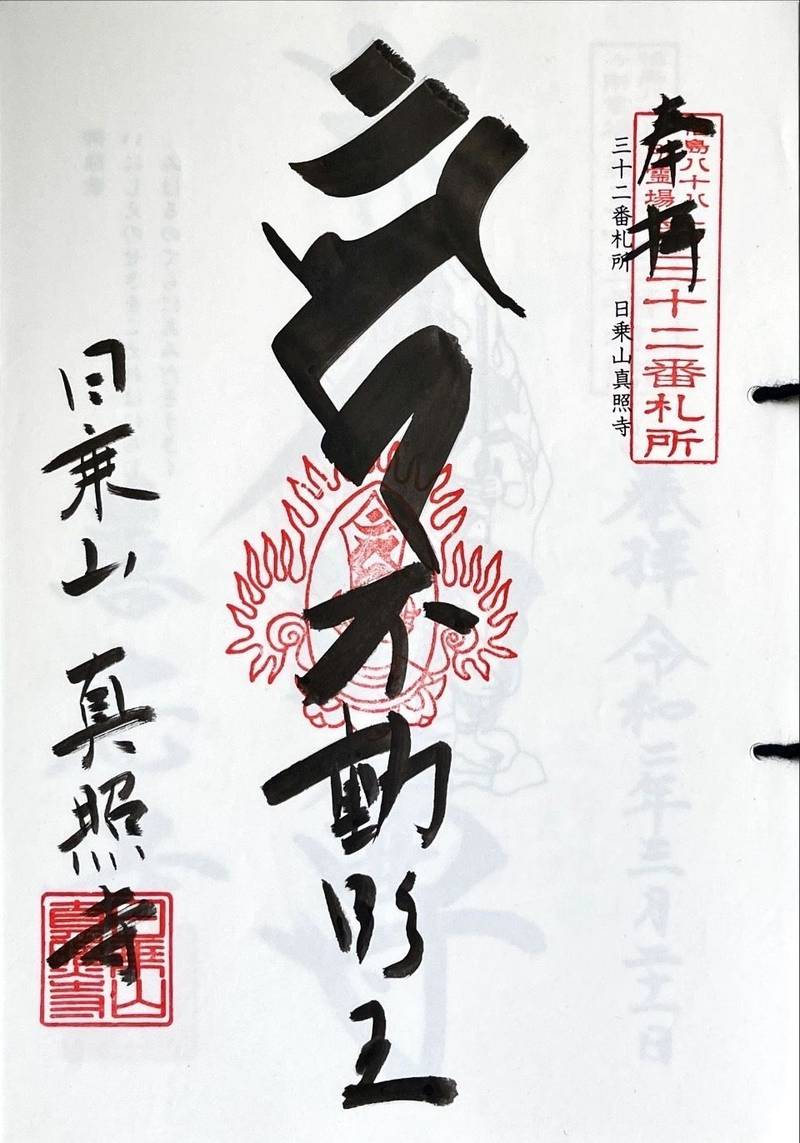 奉拝
八十八
霊場
三十二番札所
三十二番札所 日乗山真照寺
不動明王
日乗山 真照寺
奉拝 令和二年三月二十一日